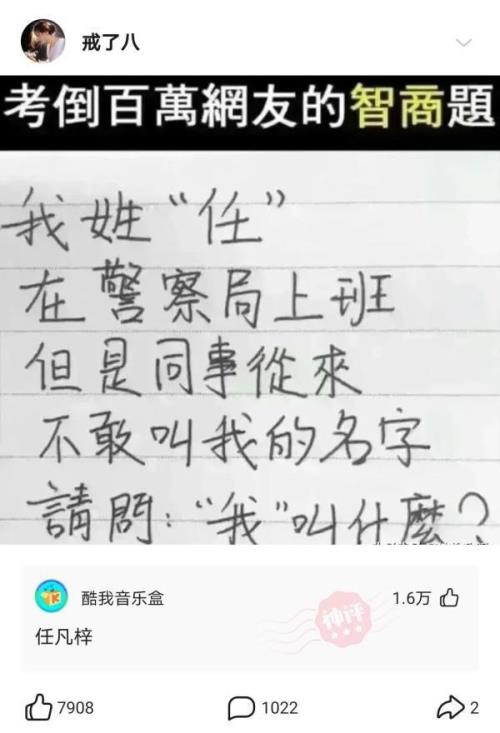 戒了八
考倒百萬網友的智商題
我姓“任”
在警察局上班
但是同事從來
不敢叫我的名字
請問：“我”叫什麼？
酷我音乐盒
1.6万
神评
任凡梓
7908
1022
2